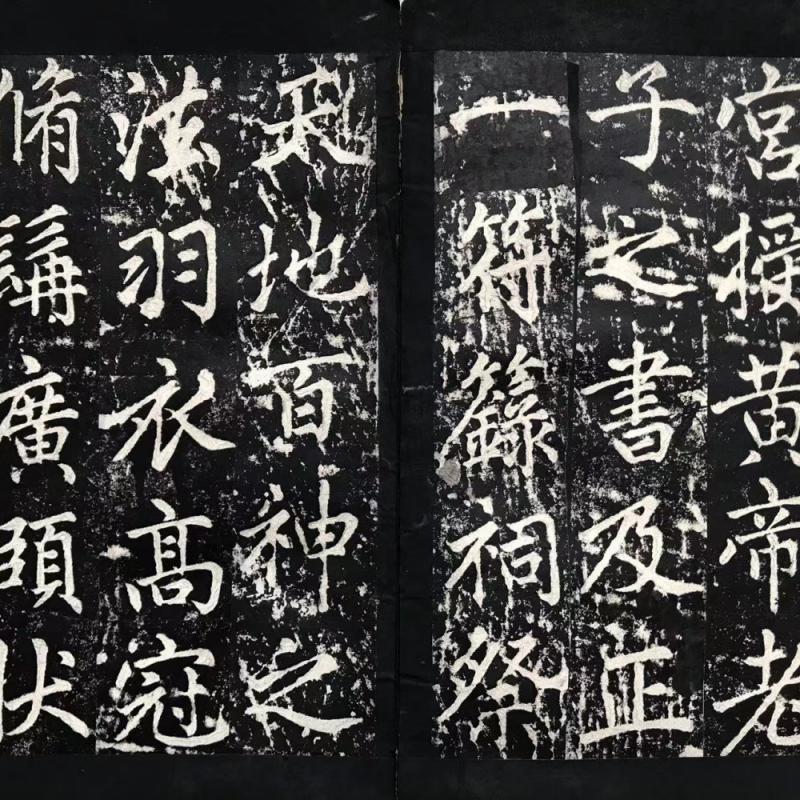 宮授黄帝老
子之書及正
一符籙祠祭
天地百神之
法羽衣高冠
脩髯廣頭状